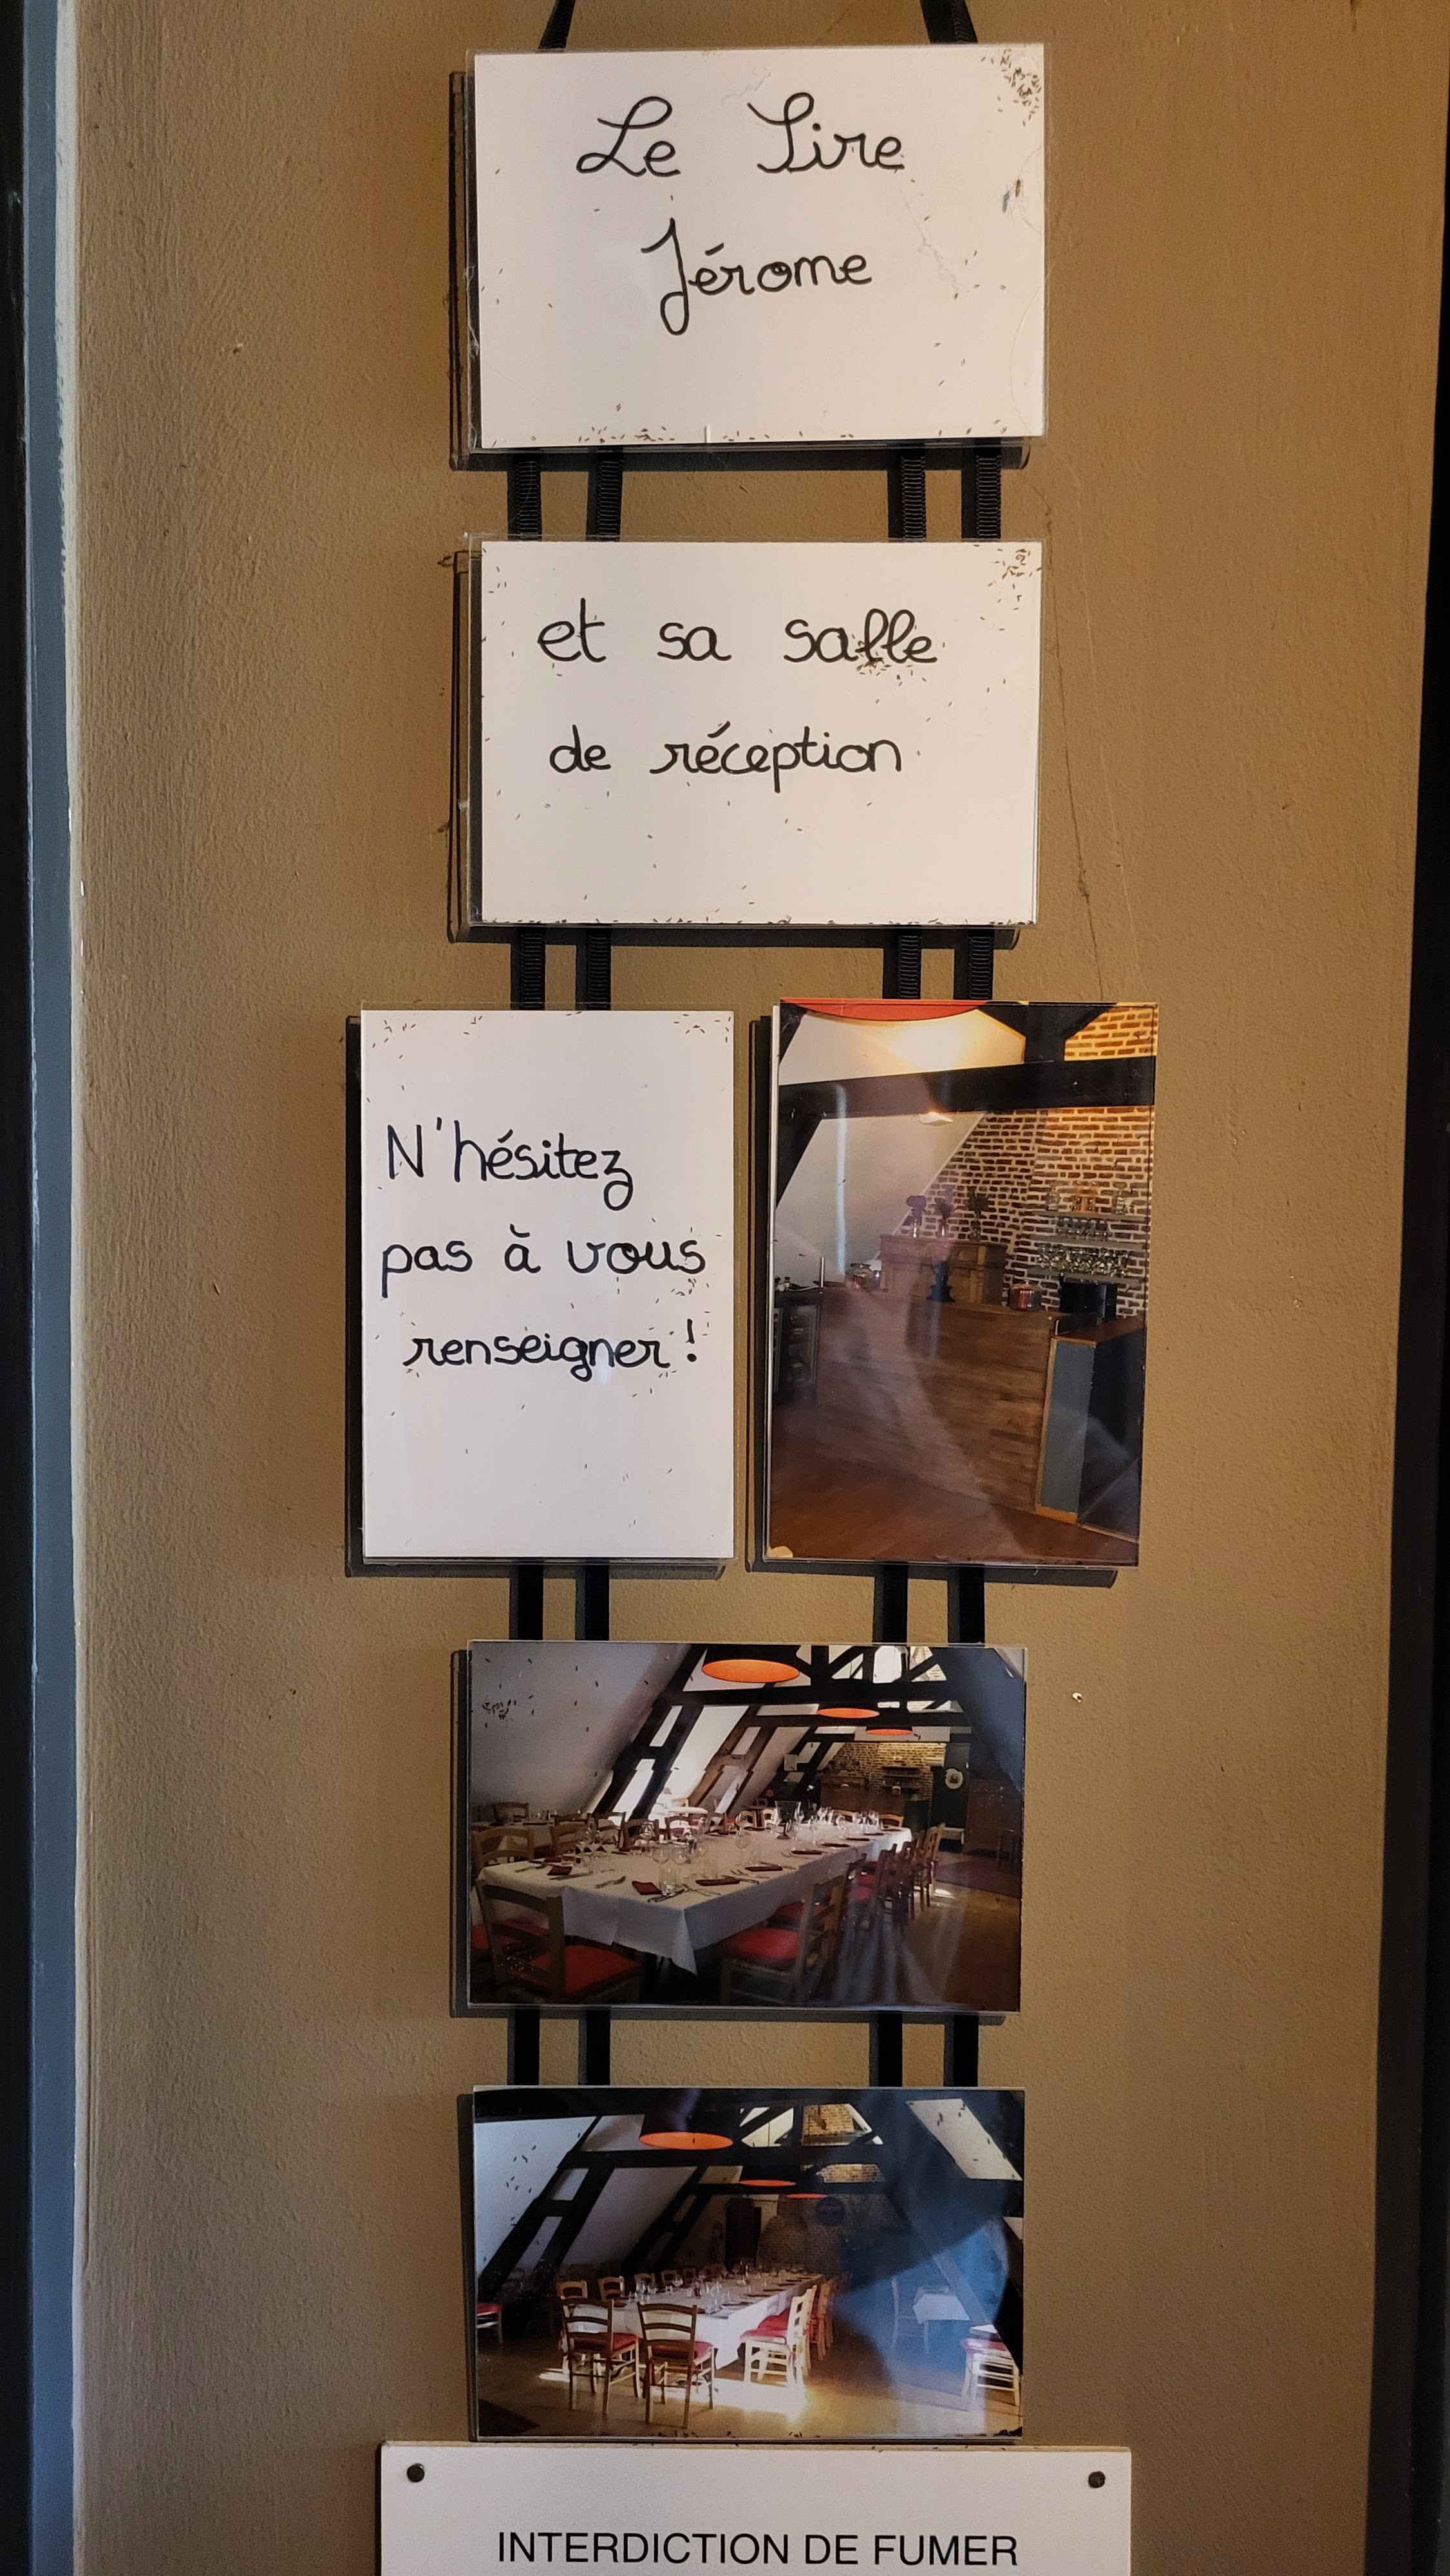 Le Sire
Jérome
et sa salle
de réception
N'hésitez
pas à vous
renseigner !
INTERDICTION DE FUMER